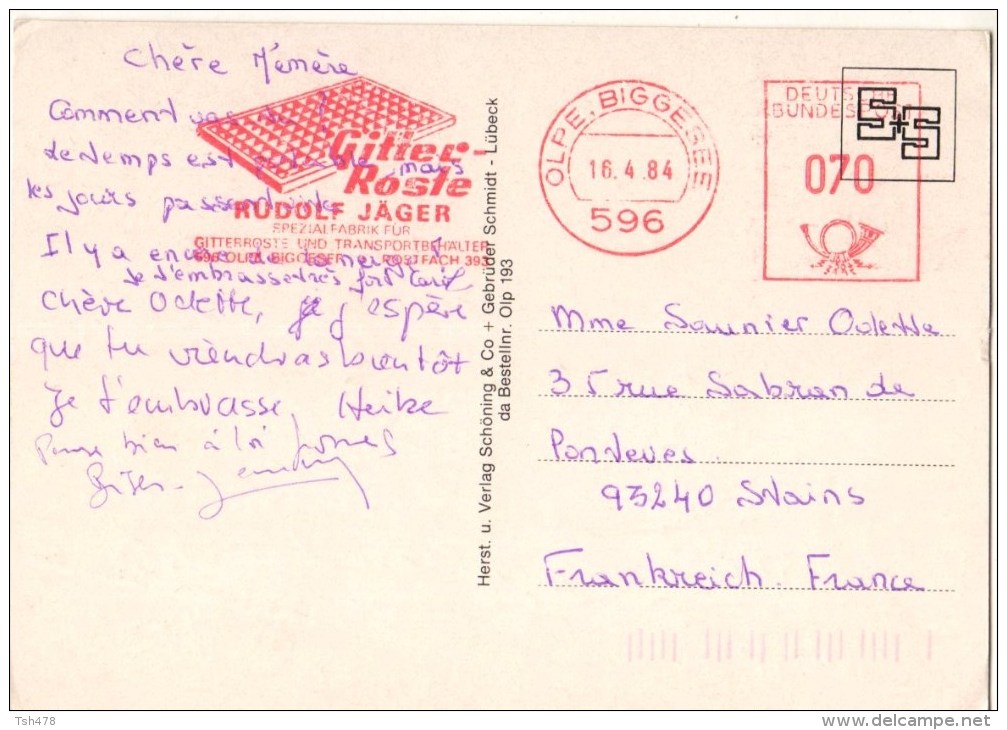 Chère Mémère
Comment vas tu ?
le temps est mais
les jours passent vite
Il y a encore de la neige
Je t'embrasse très fort
Chère Odette, j'espère
que tu viendras bientôt
Je t'embrasse, Heike
bien à toi
Gitter-
Roste
RUDOLF JÄGER
SPEZIALFABRIK FÜR
GITTERROSTE UND TRANSPORTBEHÄLTER
596 OLPE BIGGESEE POSTFACH 393
Herst. u. Verlag Schöning & Co + Gebrüder Schmidt - Lübeck
da Bestellnr. Olp 193
OLPE, BIGGESEE
16.4.84
596
DEUTSCHE
BUNDESPOST
070
S+S
Mme Saunier Odette
35 rue Sabran de
Ponteves
93240 Stains
Frankreich. France
Tsh478
www.delcampe.net